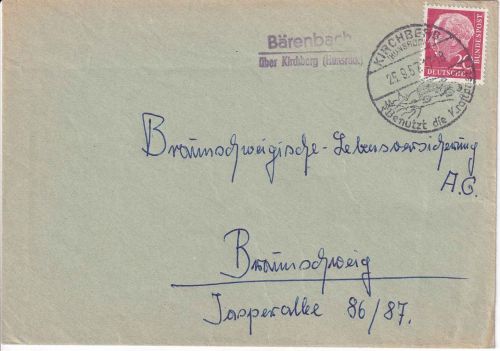 Bärenbach
über Kirchberg (Hunsrück)
KIRCHBERG
(HUNSRÜCK)
Benutzt die Kraftpost
20
DEUTSCHE
BUNDESPOST
Braunschweigische-Lebensversicherung
A.G.
Braunschweig
Jasperallee 86/87.